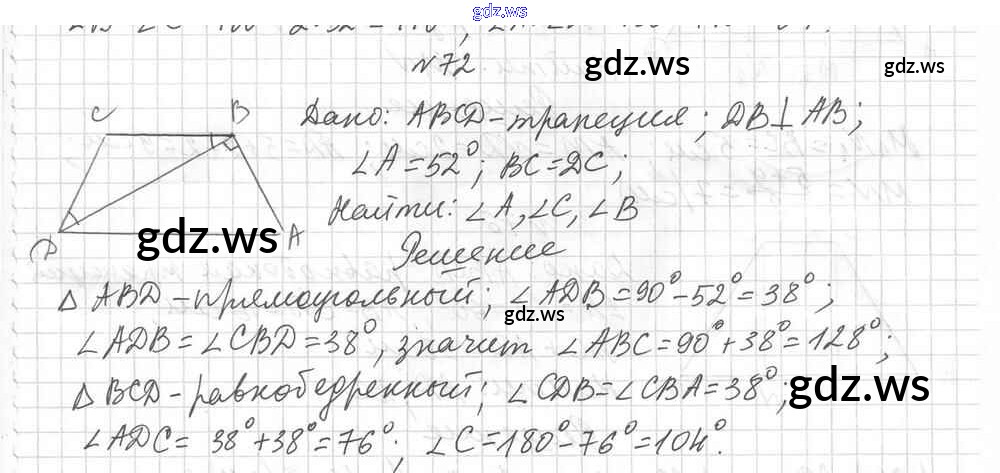 gdz.ws
N 72
gdz.ws
gdz.ws
C B
Дано: ABCD-трапеция; DB⊥AB;
∠A=52°; BC=DC;
Найти: ∠A, ∠C, ∠B
gdz.ws
D A
Решение
△ ABD-прямоугольный; ∠ADB=90°-52°=38°;
gdz.ws
∠ADB=∠CBD=38°, значит ∠ABC=90°+38°=128°;
△ BCD-равнобедренный; ∠CDB=∠CBA=38°;
gdz.ws
∠ADC= 38°+38°=76°; ∠C=180°-76°=104°.